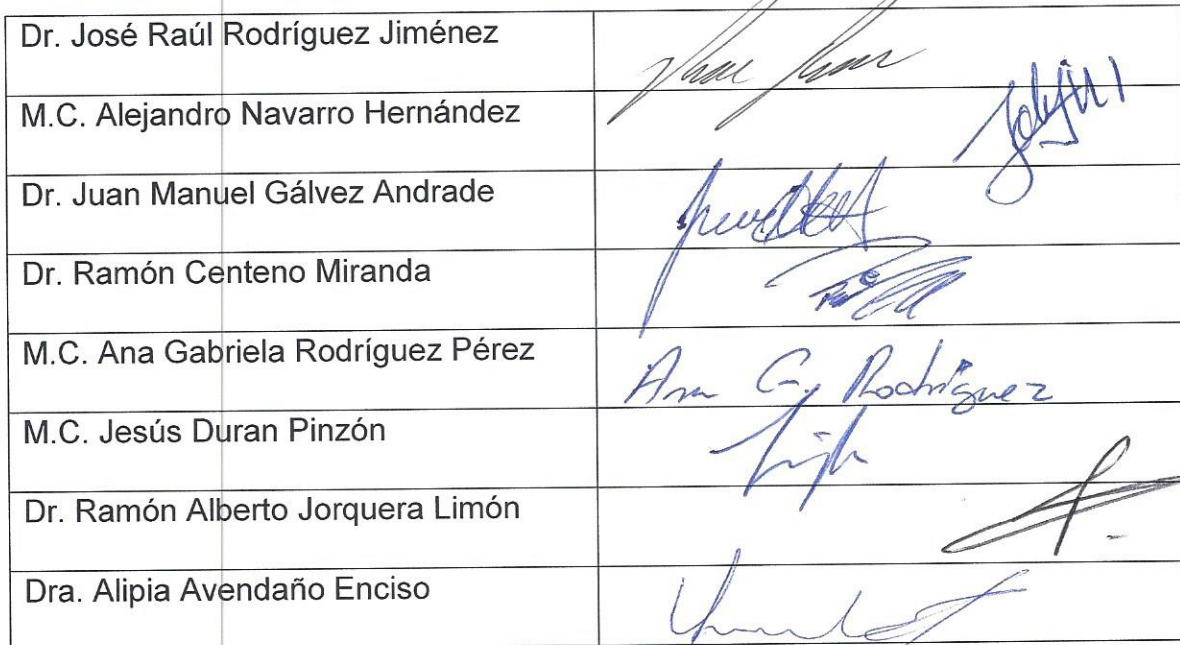 Dr. José Raúl Rodríguez Jiménez
M.C. Alejandro Navarro Hernández
Dr. Juan Manuel Gálvez Andrade
Dr. Ramón Centeno Miranda
M.C. Ana Gabriela Rodríguez Pérez
Ana G. Rodriguez
M.C. Jesús Duran Pinzón
Dr. Ramón Alberto Jorquera Limón
Dra. Alipia Avendaño Enciso